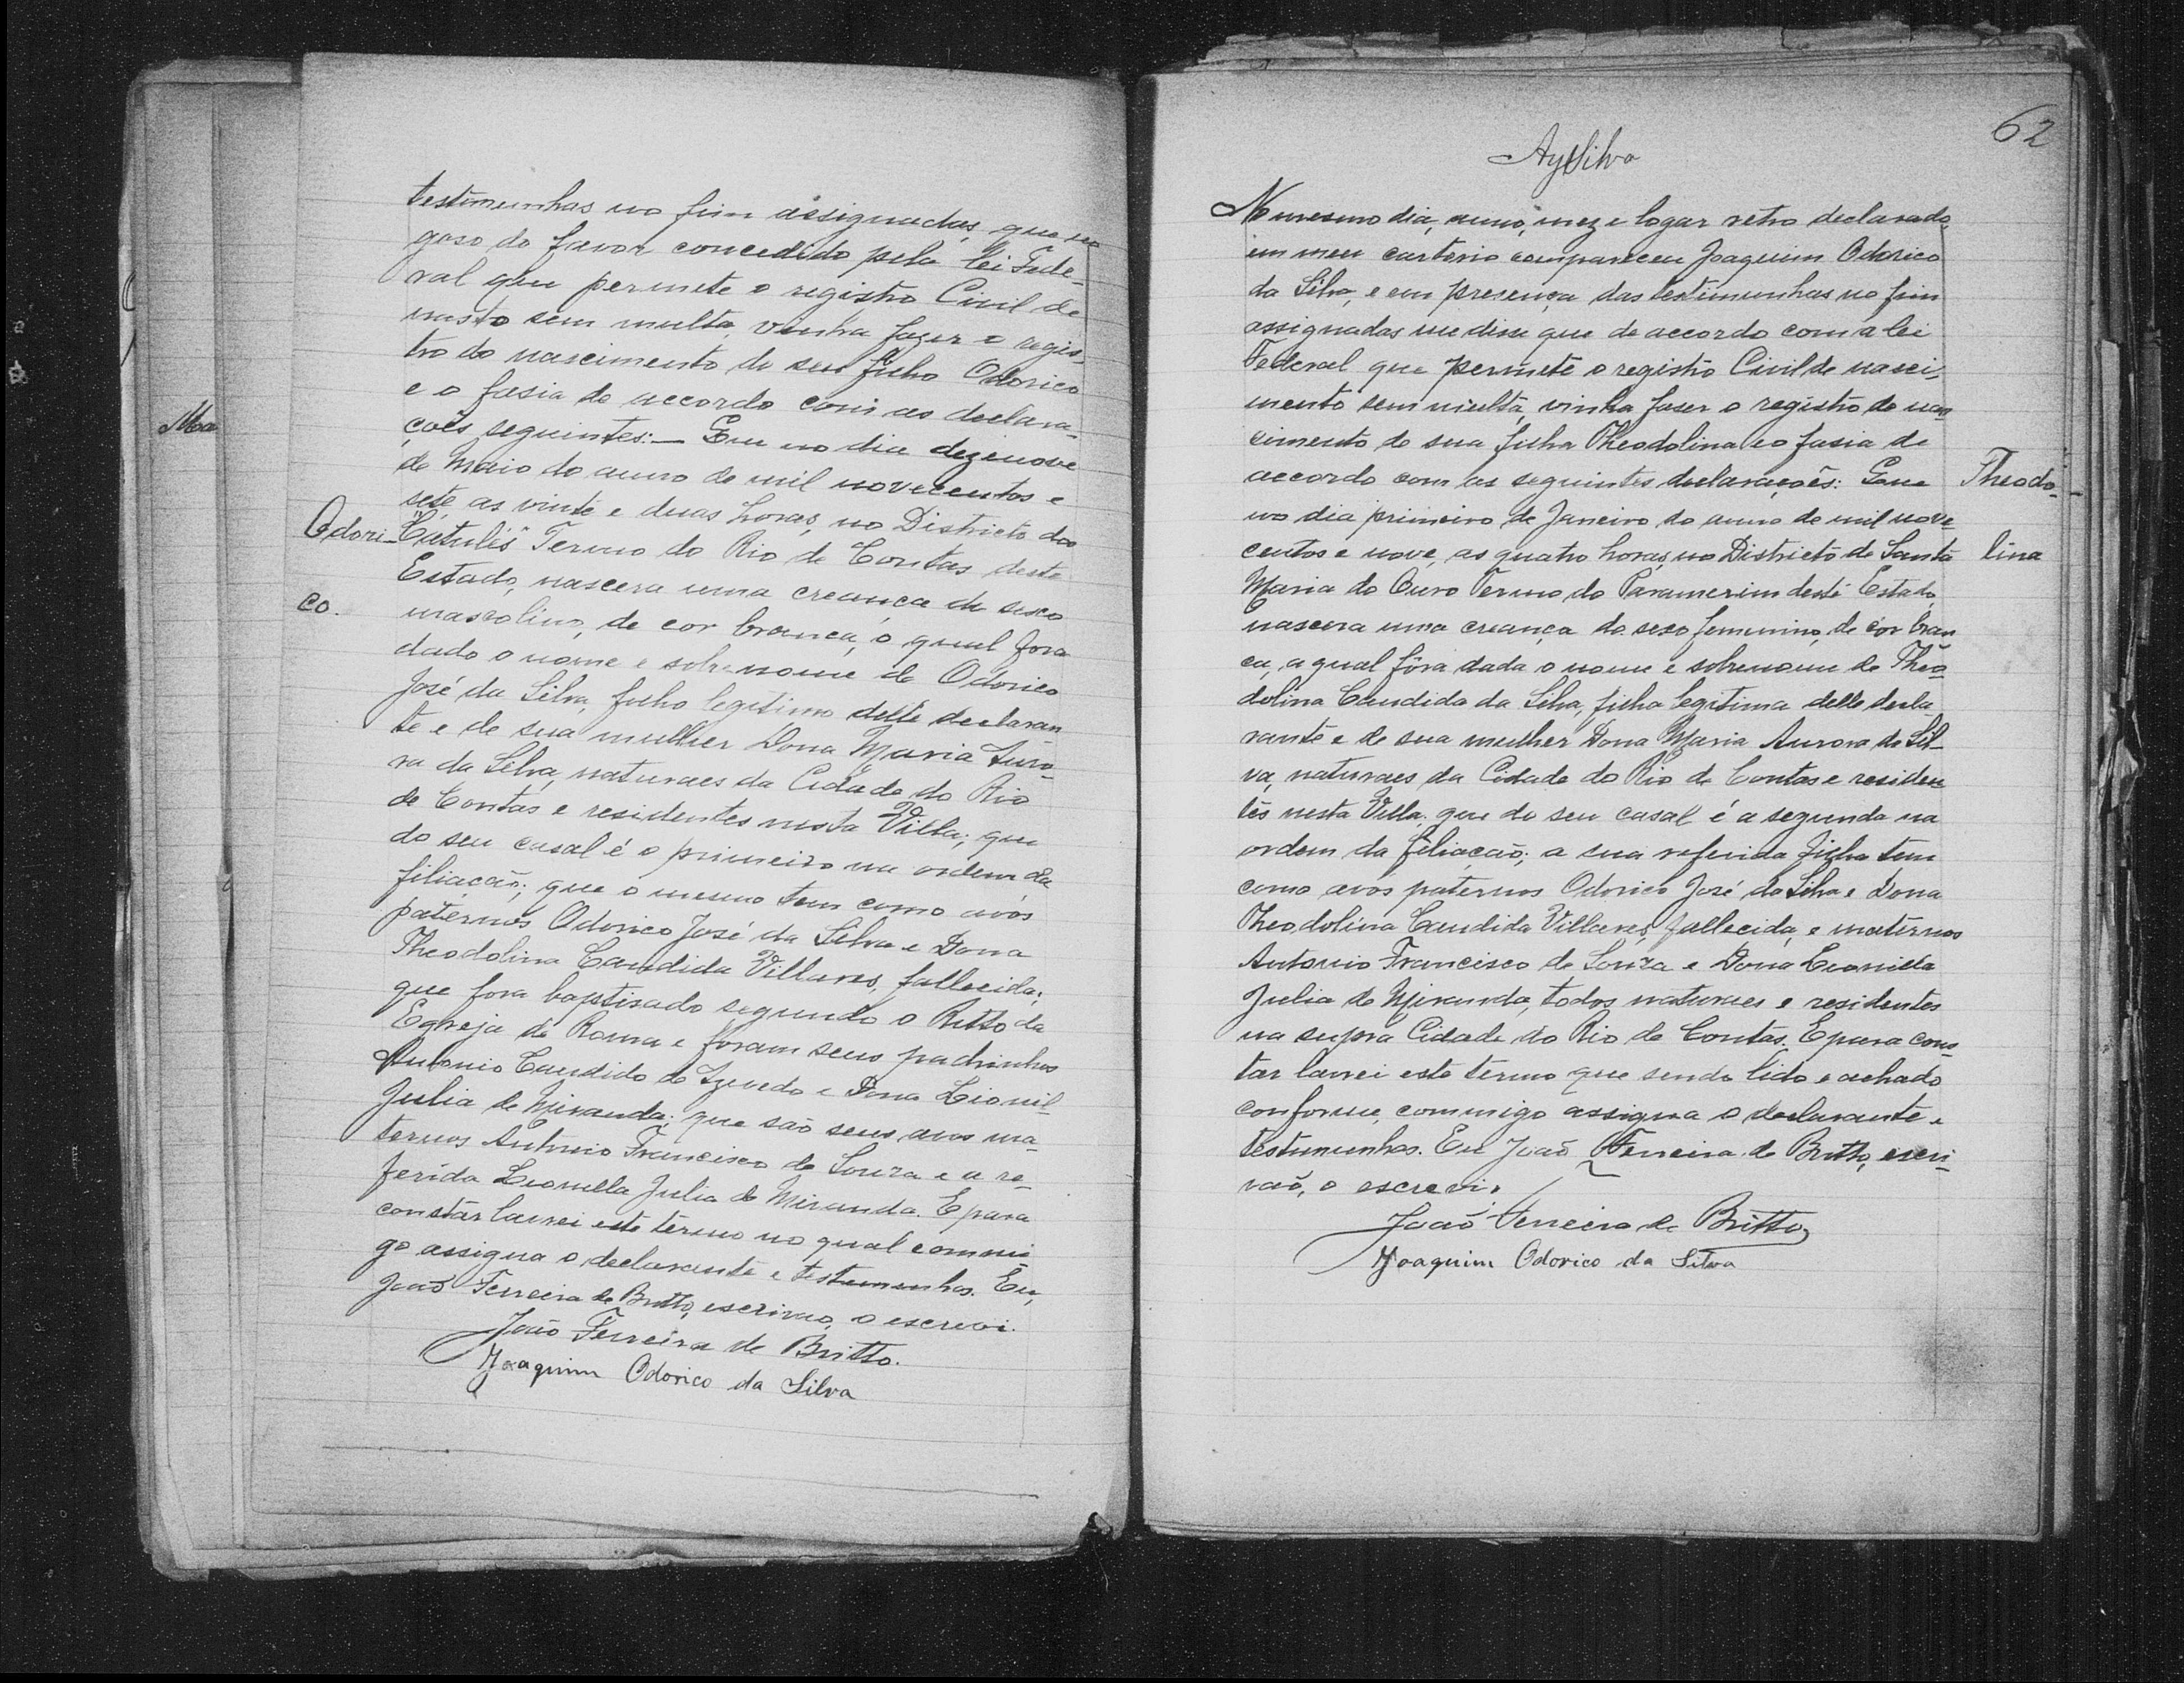 Ma
Odori-
co.
testemunhas no fim assignadas, que no
goso do favor concedido pela lei Fede-
ral que permete o registro Civil de
nasto sem multa, vinha fazer o regis-
tro do nascimento de seu filho Odorico
e o fasia de accordo com as declara-
ções seguintes:— Que no dia dezenove
de Maio do anno de mil novecentos e
sete, as vinte e duas horas, no Districto dos
"Catulés" Termo do Rio de Contas deste
Estado, nascera uma creança do sexo
mascolino, de cor branca, o qual fora
dado o nome e sobrenome de Odorico
José da Silva, filho legitimo delle declaran
te e de sua mulher Dona Maria Auro-
ra da Silva, naturaes da Cidade do Rio
de Contas e residentes nesta Villa; que
do seu casal é o primeiro na ordem da
filiação; que o mesmo tem como avós
paternos Odorico José da Silva e Dona
Theodolina Candida Villares, fallecida;
que fora baptisado segundo o Ritto da
Egreja de Roma e foram seus padrinhos
Antonio Candido de Azevedo e Dona Leonil
Julia de Miranda; que são seus avos ma-
ternos Antonio Francisco de Souza e a re-
ferida Leonilla Julia de Miranda. E para
constar lavrei este termo no qual commi
go assigna o declarante e testemunhas. Eu,
João Ferreira de Britto, escrivão, o escrevi.
João Ferreira de Britto.
Joaquim Odorico da Silva
62
AySilva
No mesmo dia, anno, mez e logar retro declarado,
em meu cartorio compareceu Joaquim Odorico
da Silva, e em presença das testimunhas no fim
assignadas me disse que de accordo com a lei
Federal que permete o registro Civil de nasci-
mento sem multa, vinha faser o registro de nas
cimento de sua filha Theodolina e o fasia de
accordo com as seguintes declarações: Que
no dia primeiro de Janeiro do anno de mil nove-
centos e nove, as quatro horas, no Districto de Santa
Maria do Ouro Termo do Paramerim deste Estado,
nascera uma creança do sexo femenino, de côr bran
ca, a qual fôra dada o nome e sobrenome de Theo-
dolina Candida da Silva, filha legitima delle decla-
rante e de sua mulher Dona Maria Aurora da Sil-
va, naturaes da Cidade do Rio de Contas e residen
tes nesta Villa; que do seu casal é a segunda na
ordem da filiação; a sua referida filha tem
como avos paternos Odorico José da Silva e Dona
Theodolina Candida Villares, fallecida, e maternos
Antonio Francisco de Souza e Dona Leonilla
Julia de Miranda, todos naturaes e residentes
na supra Cidade do Rio de Contas. E para cons-
tar lavrei este termo que sendo lido e achado
conforme, commigo assigna o declarante e
testimunhas. Eu João Ferreira de Britto, escri-
vão, o escrevi.
João Ferreira de Britto
Joaquim Odorico da Silva
Theodo-
lina